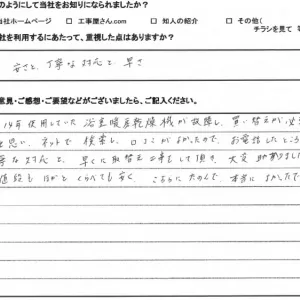 のようにして当社をお知りになられましたか？
当社ホームページ □ 工事屋さん.com □ 知人の紹介 □ その他(
チラシを見て 等
社を利用するにあたって、重視した点はありますか？
安さと、丁寧な対応と、早さ
意見・ご感想・ご要望などがございましたら、ご記入ください。
14年使用していた浴室暖房乾燥機が故障し、買い替えが必
思い、ネットで検索し、口コミがよかったので、お電話したところ
寧な対応と、早くに取替え工事をして頂き、大変助かりました
値段も ほかと くらべても安く、こちらにたのんで、本当に よかったで